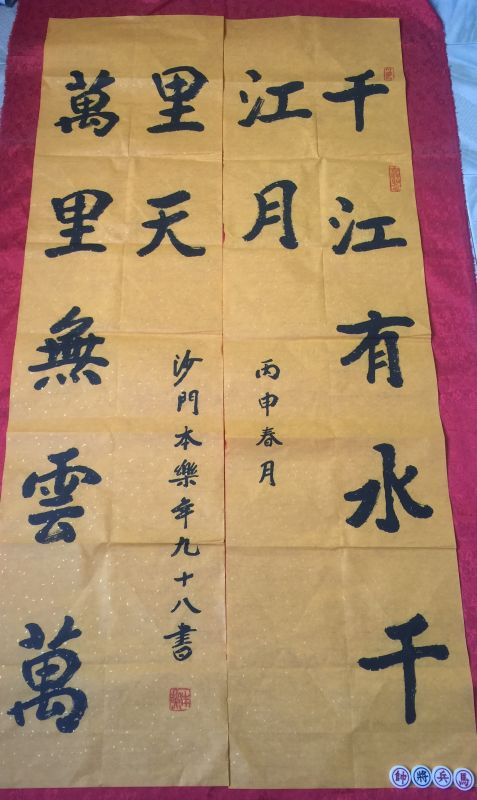 千江有水千
江月
丙申春月
萬里無雲萬
里天
沙門本樂年九十八書
帥將兵馬